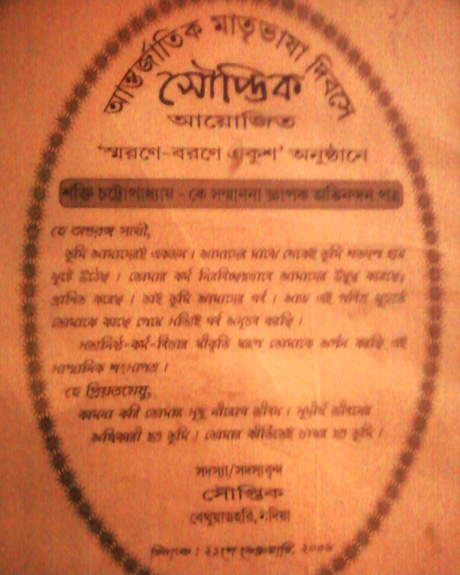 আন্তর্জাতিক মাতৃভাষা দিবসে
সৌপ্তিক
আয়োজিত
'স্মরণে-বরণে একুশ' অনুষ্ঠানে
শক্তি চট্টোপাধ্যায় - কে সম্মাননা জ্ঞাপক অভিনন্দন পত্র
হে অন্তরঙ্গ সাথী,
তুমি আমাদেরই একজন। আমাদের মাঝে থেকেই তুমি শতদল হয়ে
ফুটে উঠেছ। তোমার কর্ম নিরবিচ্ছিন্নভাবে আমাদের উদ্বুদ্ধ করেছে,
প্রাণিত করেছে। তাই তুমি আমাদের গর্ব। আজ এই পবিত্র মুহূর্তে
তোমাকে কাছে পেয়ে সত্যিই গর্ব অনুভব করছি।
সত্যনিষ্ঠ-কর্ম-বিচার স্বীকৃতি স্বরূপ তোমাকে অর্পন করছি এই
সাম্মানিক শংসাপত্র।
হে প্রিয়তমেষু,
কামনা করি তোমার সুস্থ নীরোগ জীবন। সুদীর্ঘ জীবনের
অধিকারী হও তুমি। তোমার কীর্তিতেই ভাস্বর হও তুমি।
সদস্যা/সদস্যবৃন্দ
সৌপ্তিক
বেথুয়াডহরি, নদিয়া
দিনাংক : ২১শে ফেব্রুয়ারি, ২০০৬